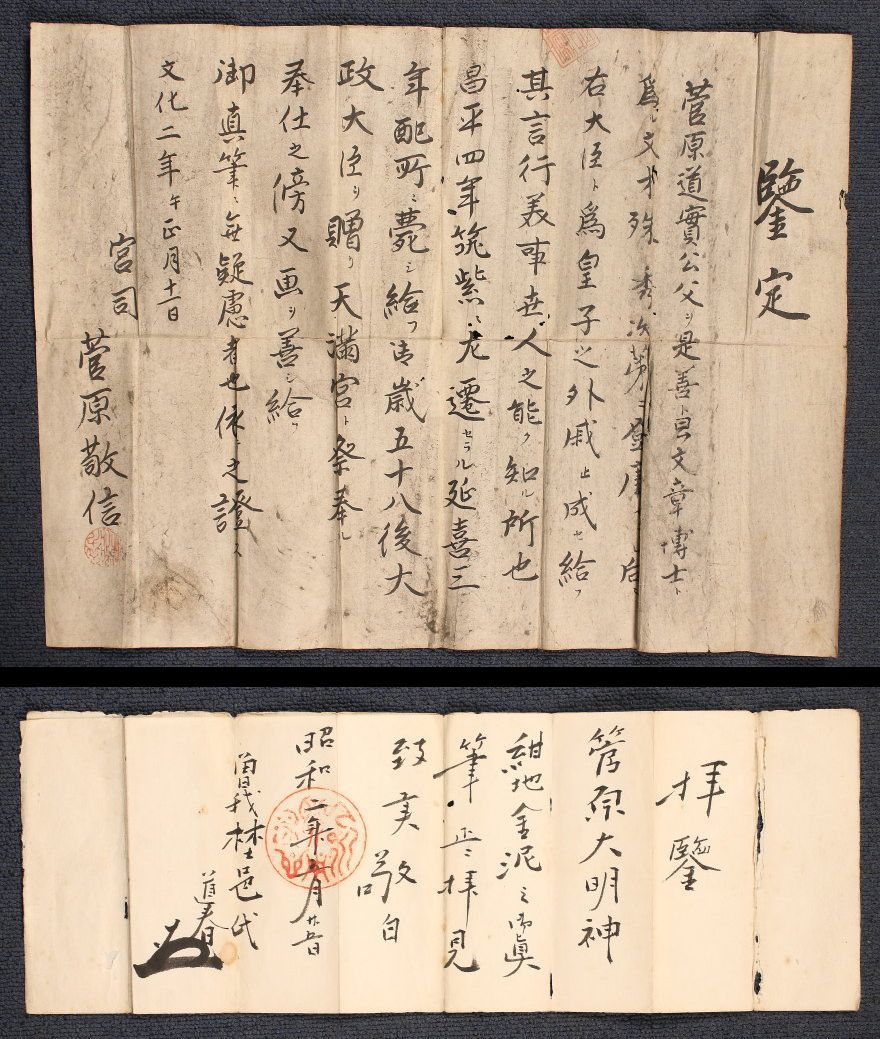 鑒定
菅原道實公父ヲ是善ト曰文章博士ト
為ル文才殊秀次第ニ登庸
右大臣ト為皇子之外戚ト成セ給フ
其言行義事世人之能ク知ル所也
昌平四年筑紫ニ左遷セラル延喜三
年配所ニ薨シ給フ御歳五十八後大
政大臣ヲ贈リ天満宮ト祭奉ル
奉仕之傍又画ヲ善シ給フ
御真筆ニ無疑慮者也依之證ス
文化二年 正月十一日
宮司
菅原敬信
拝鑒
菅原大明神
紺地金泥之御真
筆正ニ拝見
致実敬白
昭和二年 月廿五日
曽我 邑氏
道春